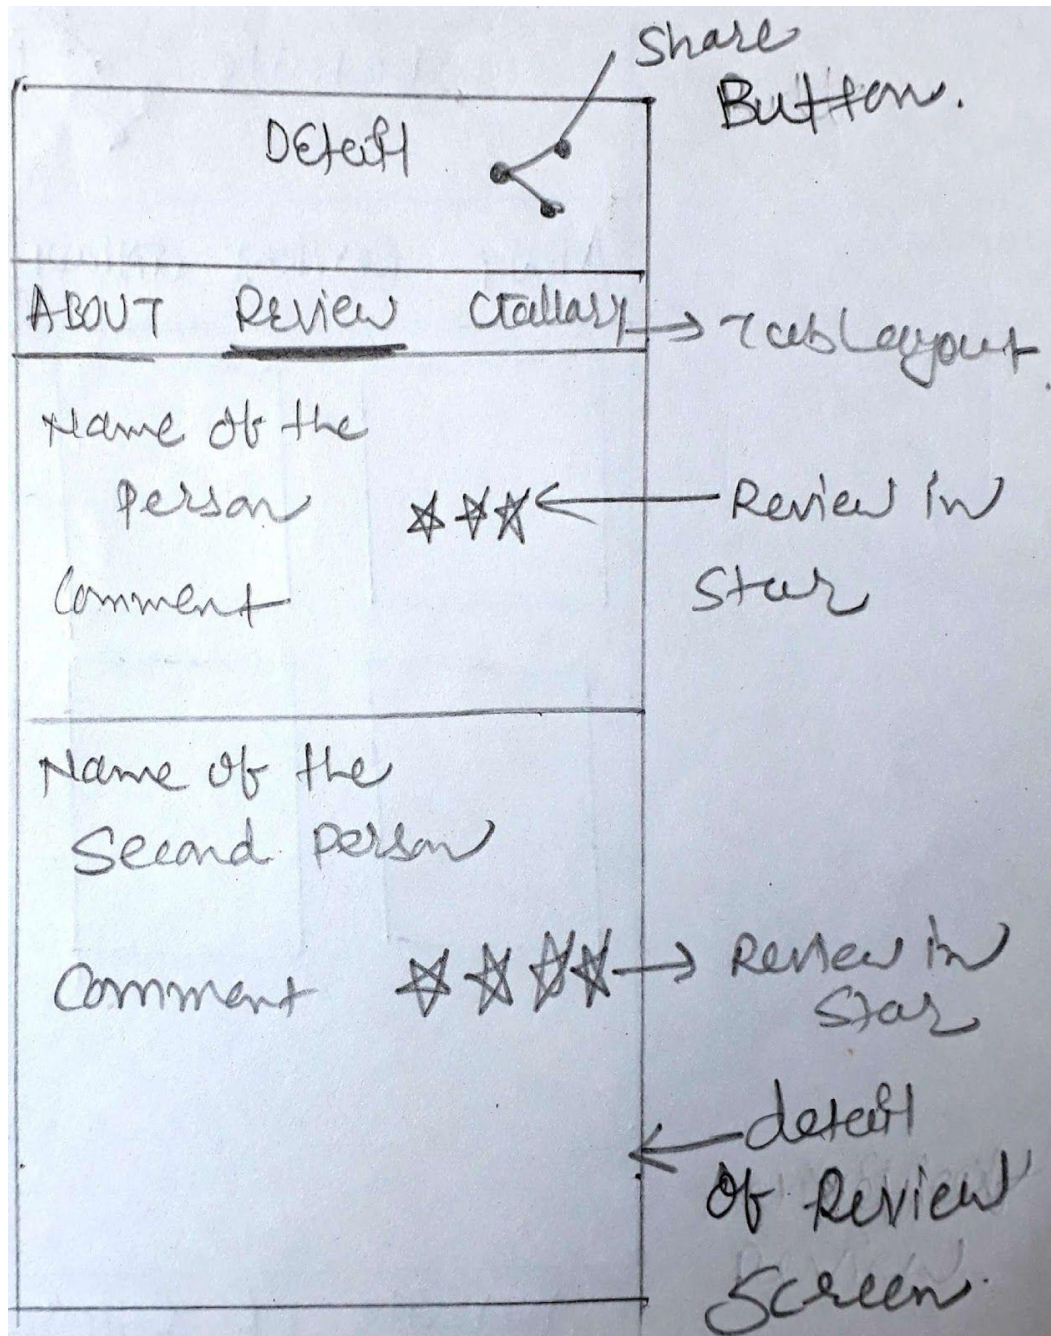 Share
Button.
Detail
ABOUT Review Gallary
TabLayout
Name of the
Person
Review in
Star
Comment
Name of the
Second Person
Comment
Review in
Star
detail
Of Review
Screen.